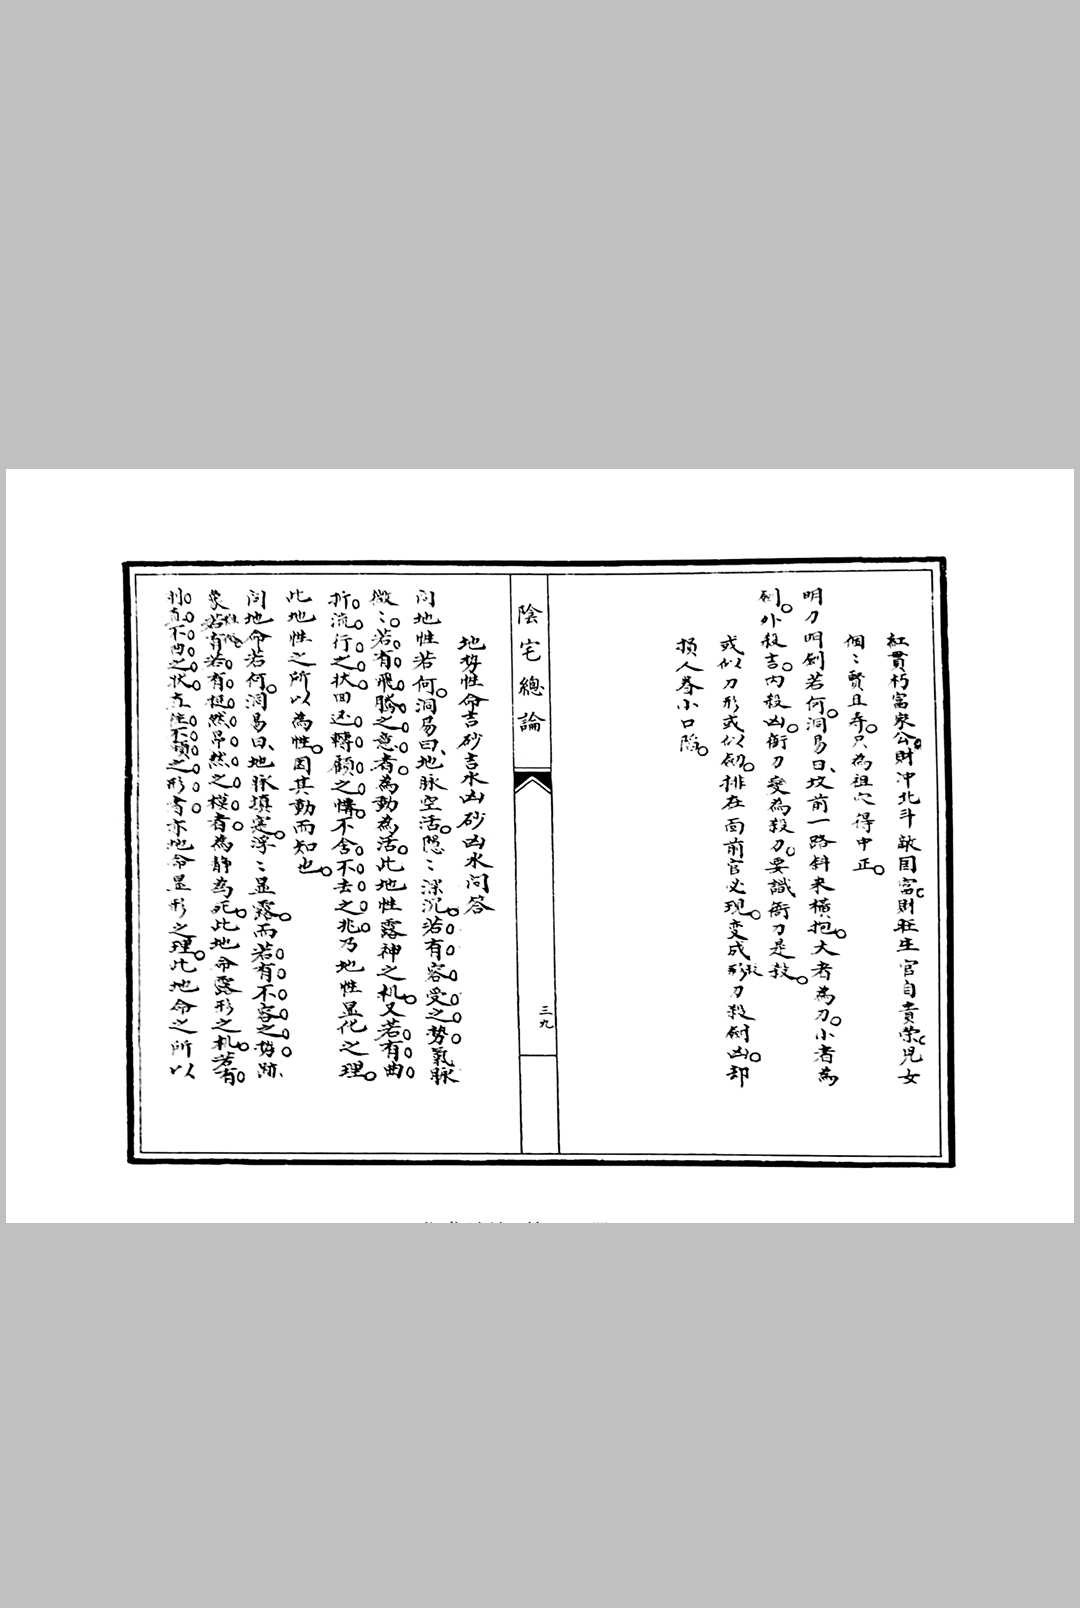 紅貫朽富家公財沖北斗敵国富財旺生官自貴榮児女
個〻賢且寿只為祖穴得中正
明刀明劍若何洞易曰坟前一路斜来橫抱大者為刀小者為
劍外殺吉内殺凶衙刀变為殺刀要識衙刀是殺
或似刀形或似劍排在面前官必現变成形刀殺劍凶却
损人眷小口隐
陰宅總論
三九
地势性命吉砂吉水凶砂凶水问答
问地性若何洞易曰地脉空活隐〻深沉若有容受之势氣脉
微〻若有飛騰之意者為動為活此地性露神之机又若有曲
折流行之状回还轉顧之情不舍不去之兆乃地性显化之理
此地性之所以為性因其動而知也
问地命若何洞易曰地脉填寔浮〻显露而若有不容之势跡
象若有若有挺然昂然之模者為静為死此地命露形之机若有
刋直不曲之状直往不顧之形者亦地命显形之理此地命之所以